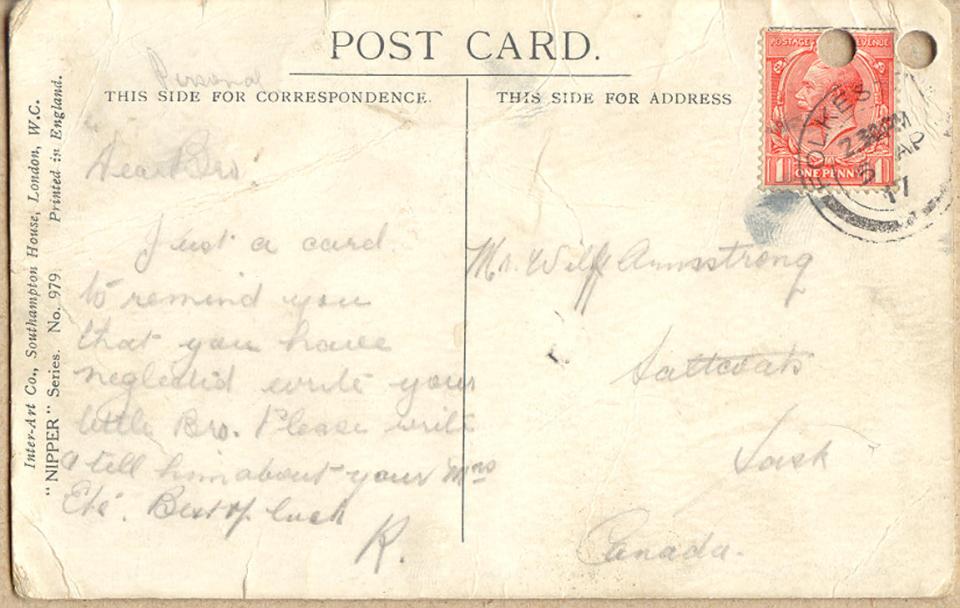 POST CARD.
Personal
THIS SIDE FOR CORRESPONDENCE.
THIS SIDE FOR ADDRESS
Inter-Art Co., Southampton House, London, W.C.
"NIPPER" Series. No. 979 Printed in England.
Dear Bro.
Just a card
to remind you
that you have
neglectid write your
little Bro. Please write
& tell him about your Mrs
Etc. Best of luck
R.
POSTAGE REVENUE
1 ONE PENNY 1
FOLKEST
2.30PM
AP
17
Mr. Wilf Armstrong
Saltcoats
Sask
Canada.